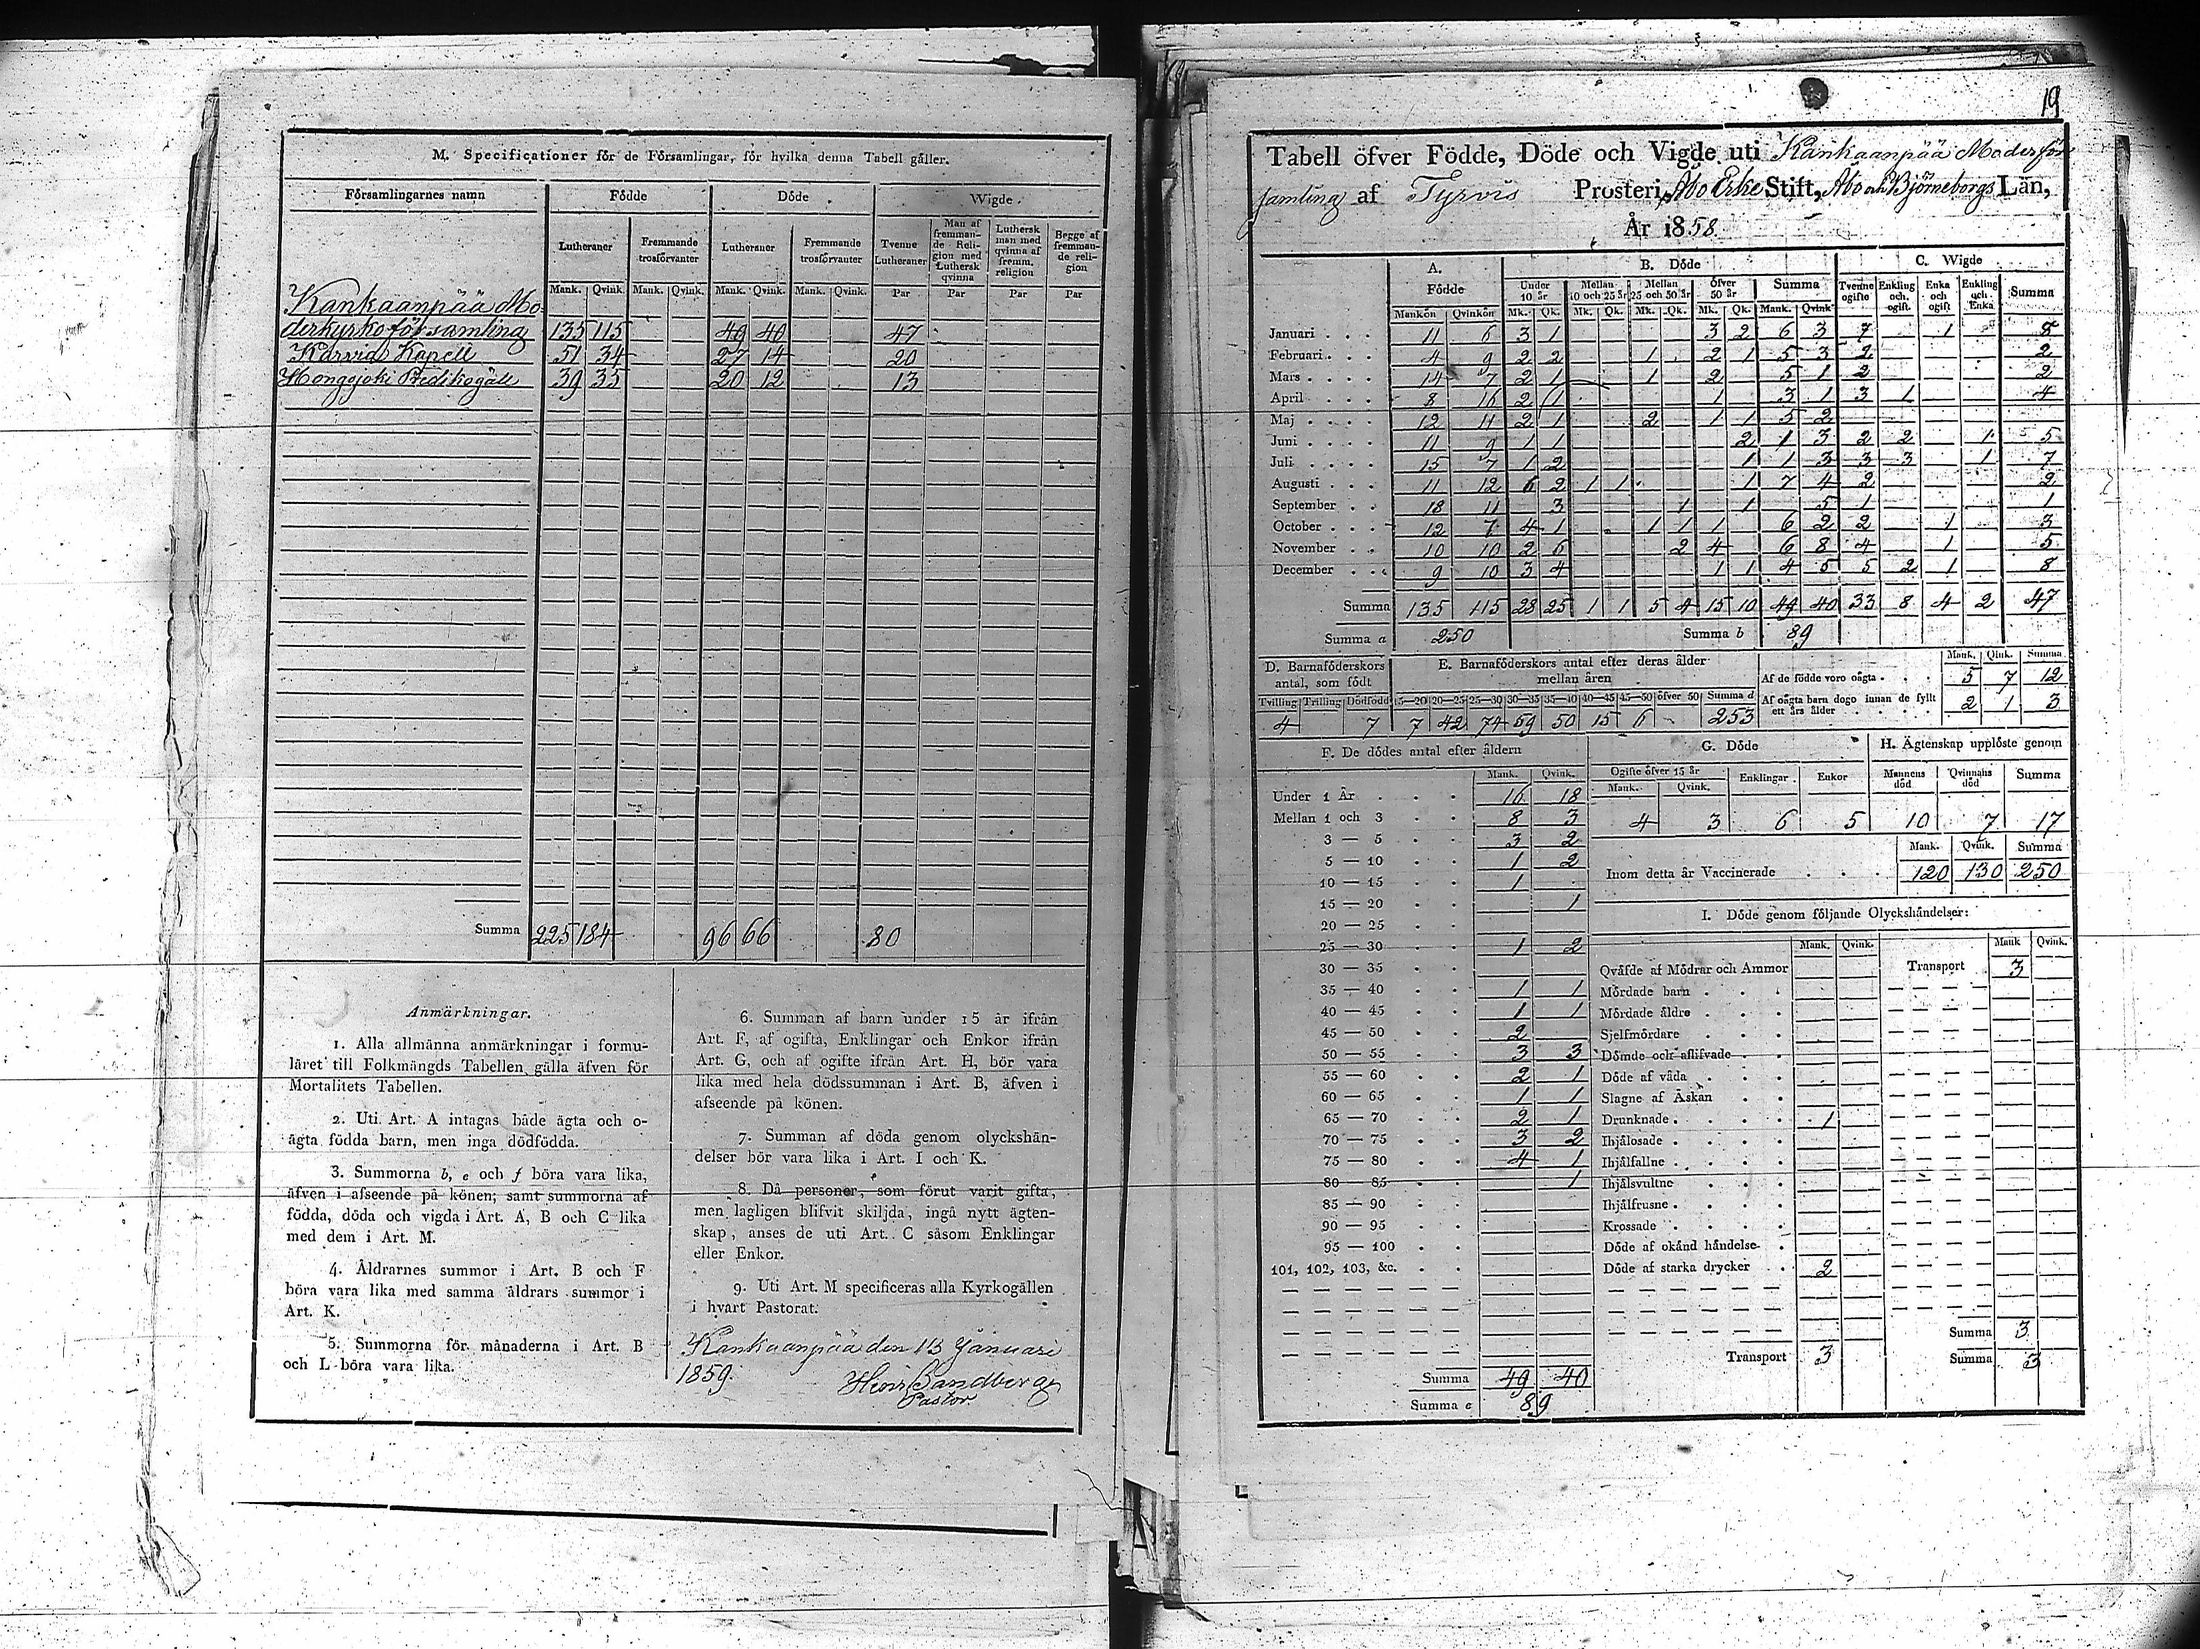 M. Specificationer för de Församlingar, för hvilka denna Tabell gäller.
Församlingarnes namn | Födde | Döde | Wigde
Lutheraner | Fremmande trosförvanter | Lutheraner | Fremmande trosförvanter | Tvenne Lutheraner | Man af fremmande Religion med Luthersk qvinna | Luthersk man med qvinna af fremm. religion | Begge af fremmande religion
Mank. Qvink. Mank. Qvink. Mank. Qvink. Mank. Qvink. Par Par Par Par
Kankaanpää Mo-
derkyrko församling 135 115 49 40 47
Karvia Kapell 51 34 27 14 20
Hongojoki Predikogäll 39 35 20 12 13
Summa 225 184 96 66 80
Anmärkningar.
1. Alla allmänna anmärkningar i formu-
läret till Folkmängds Tabellen gälla äfven för
Mortalitets Tabellen.
2. Uti Art. A intagas både ägta och o-
ägta födda barn, men inga dödfödda.
3. Summorna b, e och f böra vara lika,
äfven i afseende på könen; samt summorna af
födda, döda och vigda i Art. A, B och C lika
med dem i Art. M.
4. Åldrarnes summor i Art. B och F
böra vara lika med samma åldrars summor i
Art. K.
5. Summorna för månaderna i Art. B
och L böra vara lika.
6. Summan af barn under 15 år ifrån
Art. F, af ogifta, Enklingar och Enkor ifrån
Art. G, och af ogifte ifrån Art. H, bör vara
lika med hela dödssumman i Art. B, äfven i
afseende på könen.
7. Summan af döda genom olyckshän-
delser bör vara lika i Art. I och K.
8. Då personer, som förut varit gifta,
men lagligen blifvit skiljda, ingå nytt ägten-
skap, anses de uti Art. C såsom Enklingar
eller Enkor.
9. Uti Art. M specificeras alla Kyrkogällen
i hvart Pastorat.
Kankaanpää den 13 Januari
1859.
Henr Sandberg
Pastor
19
Tabell öfver Födde, Döde och Vigde uti Kankaanpää Moderför
samling af Tyrvis Prosteri, Åbo Erke Stift, Åbo och Björneborgs Län,
År 1858.
A. Födde | B. Döde | C. Wigde
Under 10 år | Mellan 10 och 25 år | Mellan 25 och 50 år | öfver 50 år | Summa | Tvenne ogifte | Enkling och ogift | Enka och ogift | Enkling och Enka | Summa
Mankön Qvinkön Mk. Qk. Mk. Qk. Mk. Qk. Mk. Qk. Mank. Qvink
Januari 11 6 3 1 3 2 6 3 7 1 8
Februari 4 9 2 2 1 2 1 5 3 2 2
Mars 14 7 2 1 1 2 5 1 2 2
April 8 16 2 1 1 3 1 3 1 4
Maj 12 11 2 1 2 1 1 5 2
Juni 11 9 1 1 2 1 3 2 2 1 5
Juli 15 7 1 2 1 1 3 3 3 1 7
Augusti 11 12 6 2 1 1 1 7 4 2 2
September 18 11 3 1 1 5 1 1
October 12 7 4 1 1 1 1 6 2 2 1 3
November 10 10 2 6 2 4 6 8 4 1 5
December 9 10 3 4 1 1 4 5 5 2 1 8
Summa 135 115 28 25 1 1 5 4 15 10 49 40 33 8 4 2 47
Summa a 250 Summa b 89
D. Barnaföderskors antal, som födt
E. Barnaföderskors antal efter deras ålder mellan åren
Tvilling Trilling Dödfödd 15—20 20—25 25—30 30—35 35—40 40—45 45—50 öfver 50 Summa d
4 7 7 42 74 59 50 15 6 253
Mank. Qink. Summa
Af de födde voro oägta 5 7 12
Af oägta barn dogo innan de fyllt ett års ålder 2 1 3
F. De dödes antal efter åldern
Mank. Qvink.
Under 1 År 16 18
Mellan 1 och 3 8 3
3 — 5 3 2
5 — 10 1 2
10 — 15 1
15 — 20 1
20 — 25
25 — 30 1 2
30 — 35
35 — 40 1 1
40 — 45 1 1
45 — 50 2
50 — 55 3 3
55 — 60 2 1
60 — 65 1 1
65 — 70 2 1
70 — 75 3 2
75 — 80 4 1
80 — 85 1
85 — 90
90 — 95
95 — 100
101, 102, 103, &c.
Summa 49 40
Summa e 89
G. Döde
Ogifte öfver 15 år Enklingar Enkor
Mank. Qvink.
4 3 6 5
H. Ägtenskap upplöste genom
Mannens död Qvinnans död Summa
10 7 17
Mank. Qvink. Summa
Inom detta år Vaccinerade 120 130 250
I. Döde genom följande Olyckshändelser:
Mank. Qvink. Mank Qvink.
Qväfde af Mödrar och Ammor
Mördade barn
Mördade äldre
Sjelfmördare
Dömde och aflifvade
Döde af våda
Slagne af Åskan
Drunknade 1
Ihjälosade
Ihjälfallne
Ihjälsvultne
Ihjälfrusne
Krossade
Döde af okänd händelse
Döde af starka drycker 2
Transport 3
Transport 3
Summa 3
Summa 3